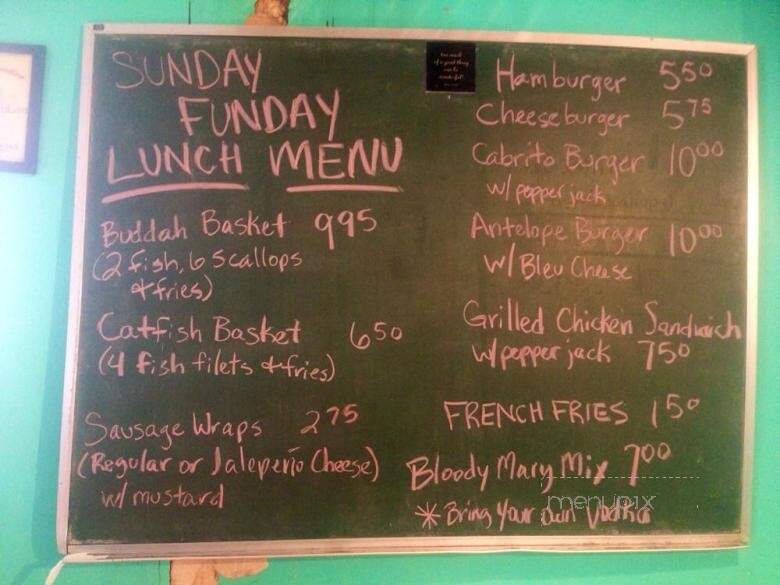 SUNDAY
FUNDAY
LUNCH MENU
Buddah Basket 995
(2 fish, 6 scallops
& fries)
Catfish Basket 650
(4 fish filets & fries)
Sausage Wraps 275
(Regular or Jalepeño Cheese)
w/ mustard
too much
of a good thing
can be
wonderful!
Hamburger 550
Cheeseburger 575
Cabrito Burger 1000
w/ pepper jack
Antelope Burger 1000
w/ Bleu Cheese
Grilled Chicken Sandwich
w/ pepper jack 750
FRENCH FRIES 150
Bloody Mary Mix 700
* Bring Your Own Vodka
menupix